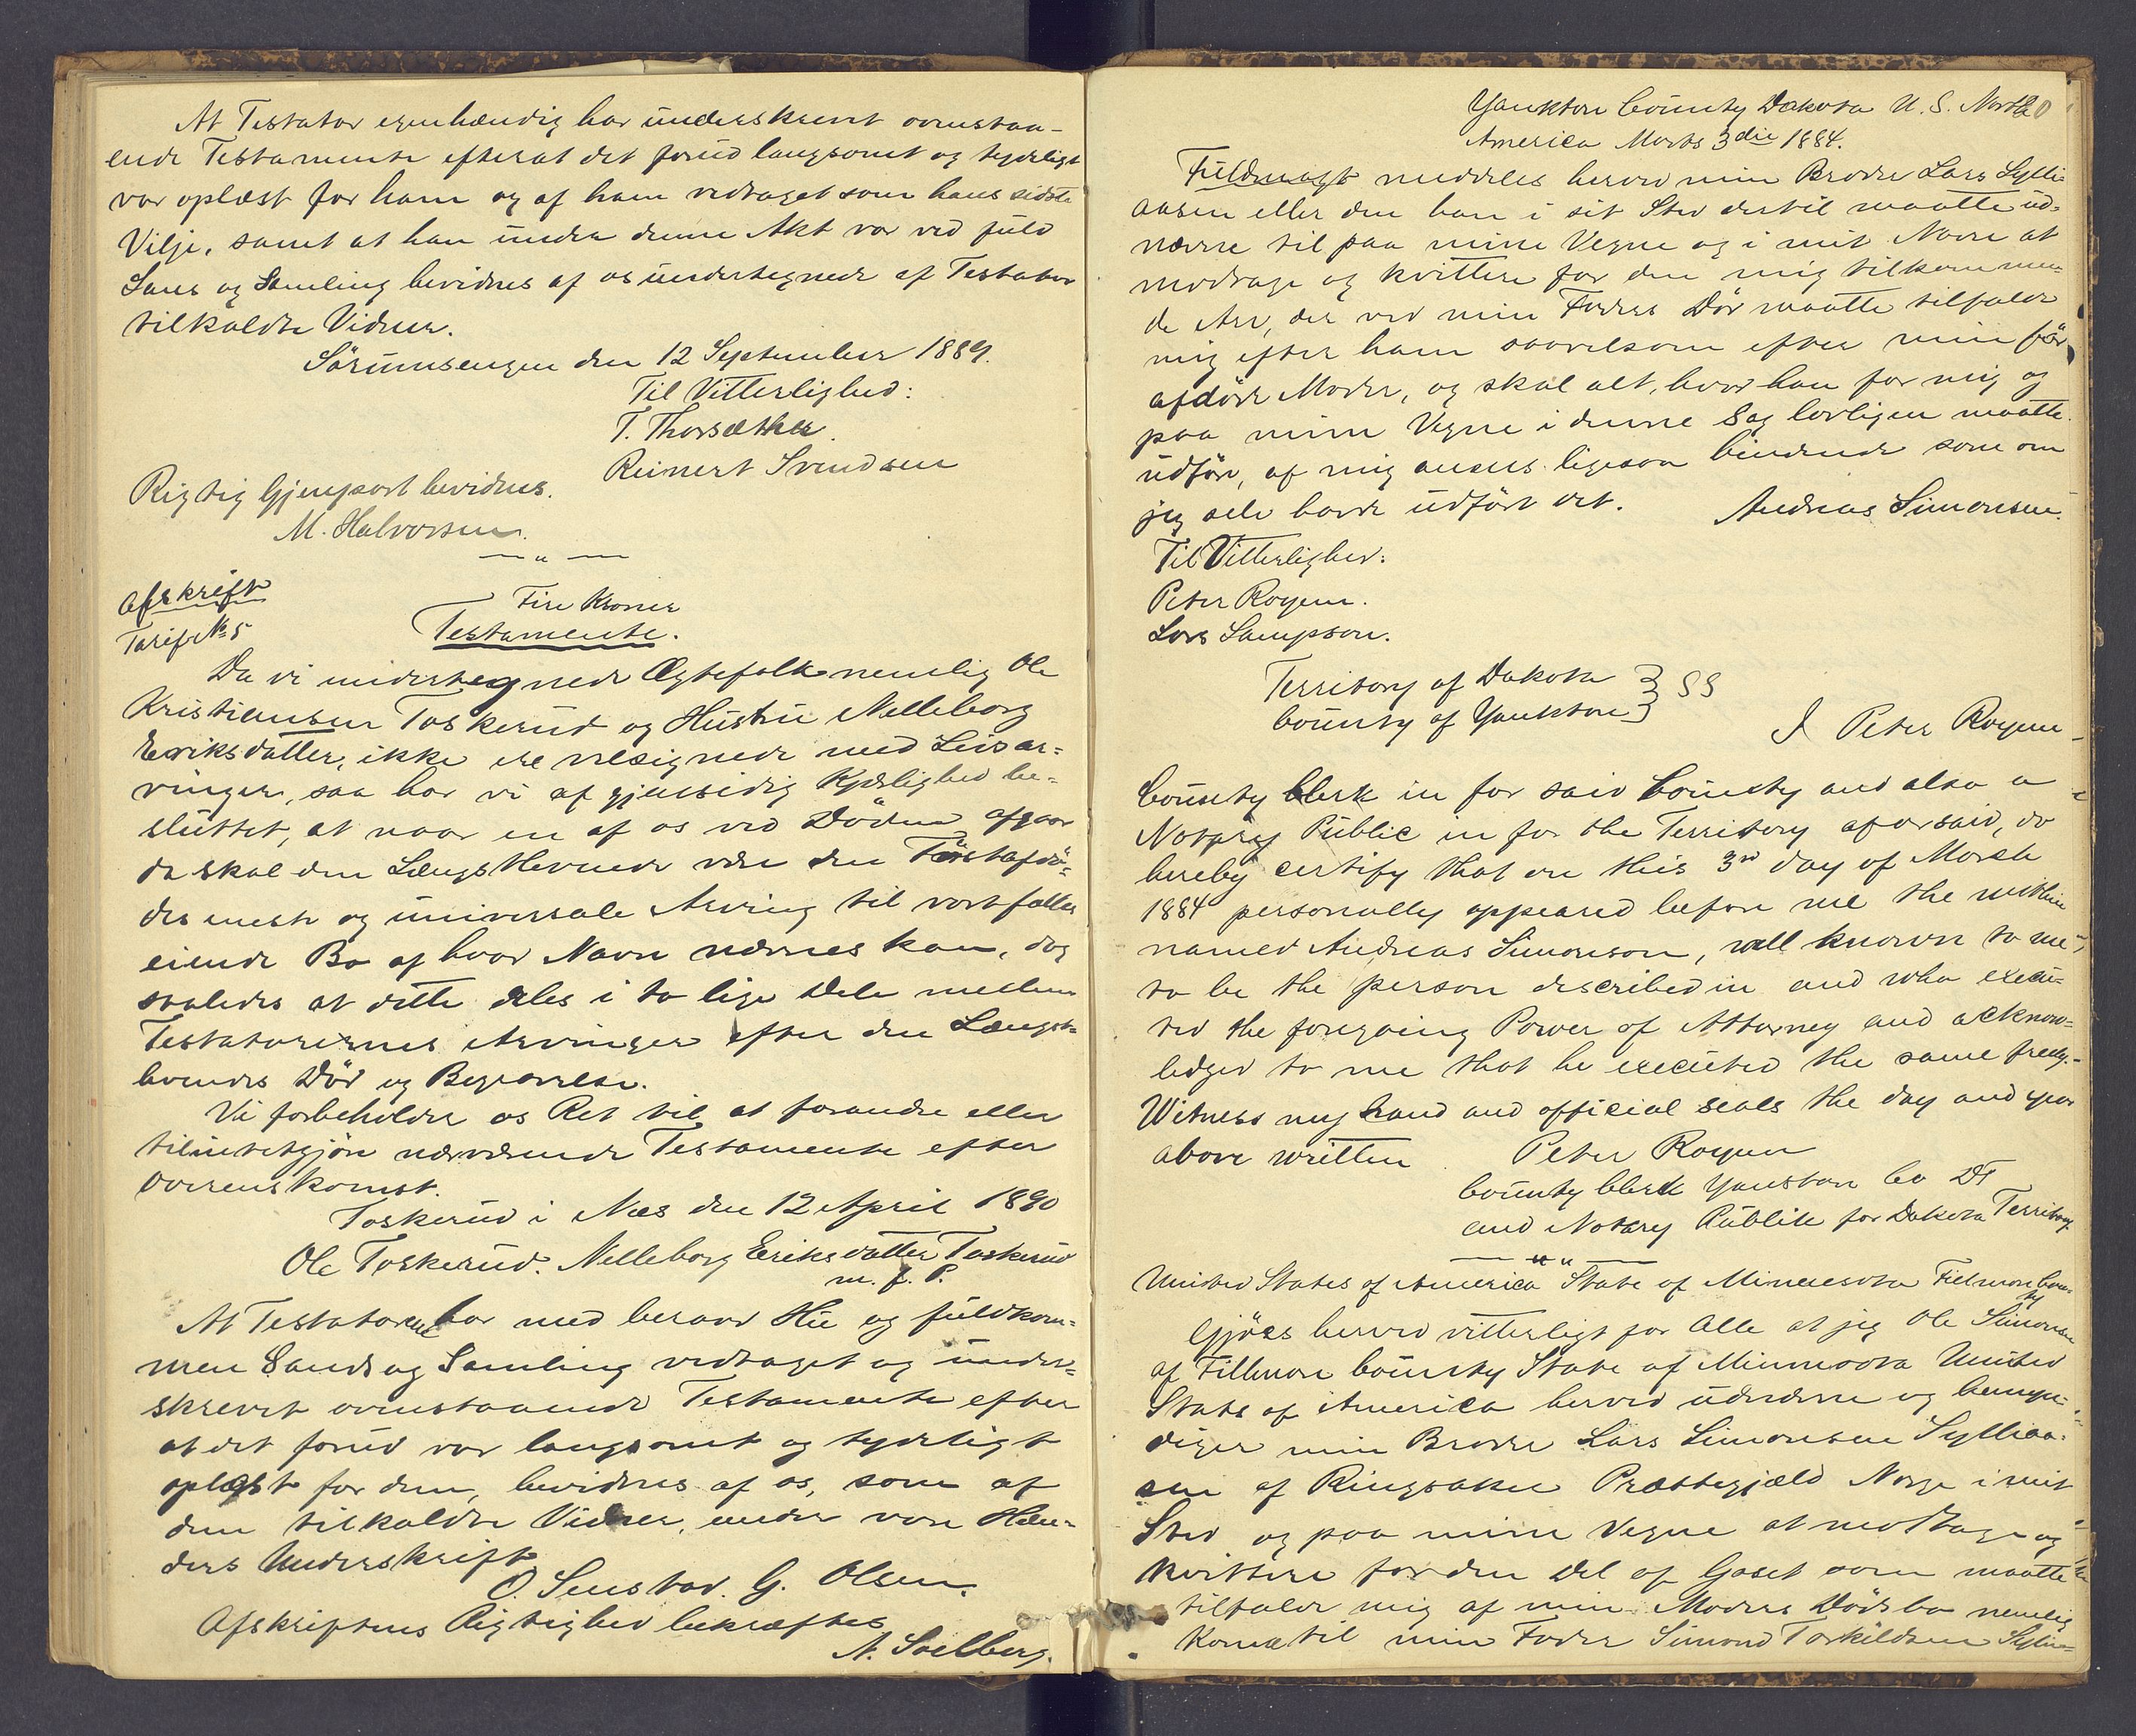 At Testator egenhændig har underskrevet ovenstaa-
ende Testamente efterat det forud langsomt og tydeligt
var oplæst for ham og af ham vedtaget som hans sidste
Vilje, samt at han under denne Akt var ved fuld
Sans og Samling bevidnes af os undertegnede af Testator
tilkaldte Vidner.
Sörumsengen den 12 September 1889.
Til Vitterlighed:
T. Thorsæther.
Reinert Svendsen
Rigtig Gjenpart bevidnes.
M. Halvorsen.
— " —
Afskrift
Tarif № 5
Fire Kroner
Testamente.
Da vi undertegnede Ægtefolk nemlig Ole
Kristiansen Toskerud og Hustru Nelleborg
Eriksdatter, ikke ere velsignede med Livsar=
vinger, saa har vi af gjensidig Kjærlighed be=
sluttet, at naar en af os ved Döden afgaar
da skal den Længstlevende være den Förstafdö=
des eneste og universale Arving til vort fælles
eiende Bo af hvad Navn nævnes kan, dog
saaledes at dette deles i to lige Dele mellem
Testatorernes Arvinger efter den Længst=
levendes Död og Begravelse.
Vi forbeholde os Ret til at forandre eller
tilintetgjöre nærværende Testamente efter
Overenskomst.
Toskerud i Næs den 12 April 1890
Ole Toskerud. Nelleborg Eriksdatter Toskerud
m. f. P.
At Testatorerne har med beraad Hu og fuldkom=
men Sands og Samling vedtaget og under=
skrevet ovenstaaende Testamente efter
at det forud var langsomt og tydeligt
oplæst for dem, bevidnes af os, som af
dem tilkaldte Vidner, under vore Hæn=
ders Underskrift
O. Senstad. G. Olsen.
Afskriftens Rigtighed bekræftes
A. Soelberg.
Yankton County Dakota U. S. North
America Marts 3die 1884.
Fuldmagt meddeles herved min Broder Lars Sylli
aasen eller den han i sit Sted dertil maatte ud=
nævne til paa mine Vegne og i mit Navn at
modtage og kvittere for den mig tilkommen=
de Arv, der ved min Faders Död maatte tilfalde
mig efter ham saavelsom efter min för
afdöde Moder, og skal alt, hvad han for mig og
paa mine Vegne i denne Sag lovligen maatte
udföre, af mig ansees ligesaa bindende som om
jeg selv havde udfört det. Andreas Simonsen.
Til Vitterlighed:
Peter Royem.
Lars Sampson.
Territory of Dakota } SS
County of Yankton }
I Peter Royem
County Clerk in for said County and also a
Notary Public in for the Territory aforsaid, do
hereby certify that on this 3rd day of March
1884 personally appeared before me the within
named Andreas Simonson, well known to me
to be the person described in and who execu=
ted the foregoing Power of Attorney and acknow=
ledged to me that he executed the same freely.
Witness my hand and official seals the day and year
above written. Peter Royem
County Clerk Yanston Co DT
and Notary Publik for Dakota Territory
— " " —
United States of America State of Minnesota Filmore Coun-
ty
Gjöres herved vitterligt for Alle at jeg Ole Simonsen
af Fillmore County State of Minnesota United
States of America herved udnævne og bemyn=
diger min Broder Lars Simonsen Sylliaa=
sen af Ringsaker Præstegjæld Norge i mit
Sted og paa mine Vegne at modtage og
kvittere for den Del af Godset som maatte
tilfalde mig af min Moders Dödsbo nemlig
Kone til min Fader Simond Torkildsen Syllia=